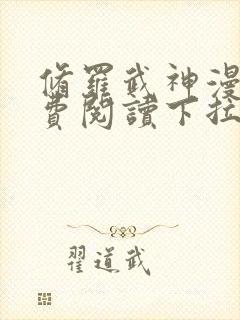 脩羅武神漫
費閱讀下拉
翟道武